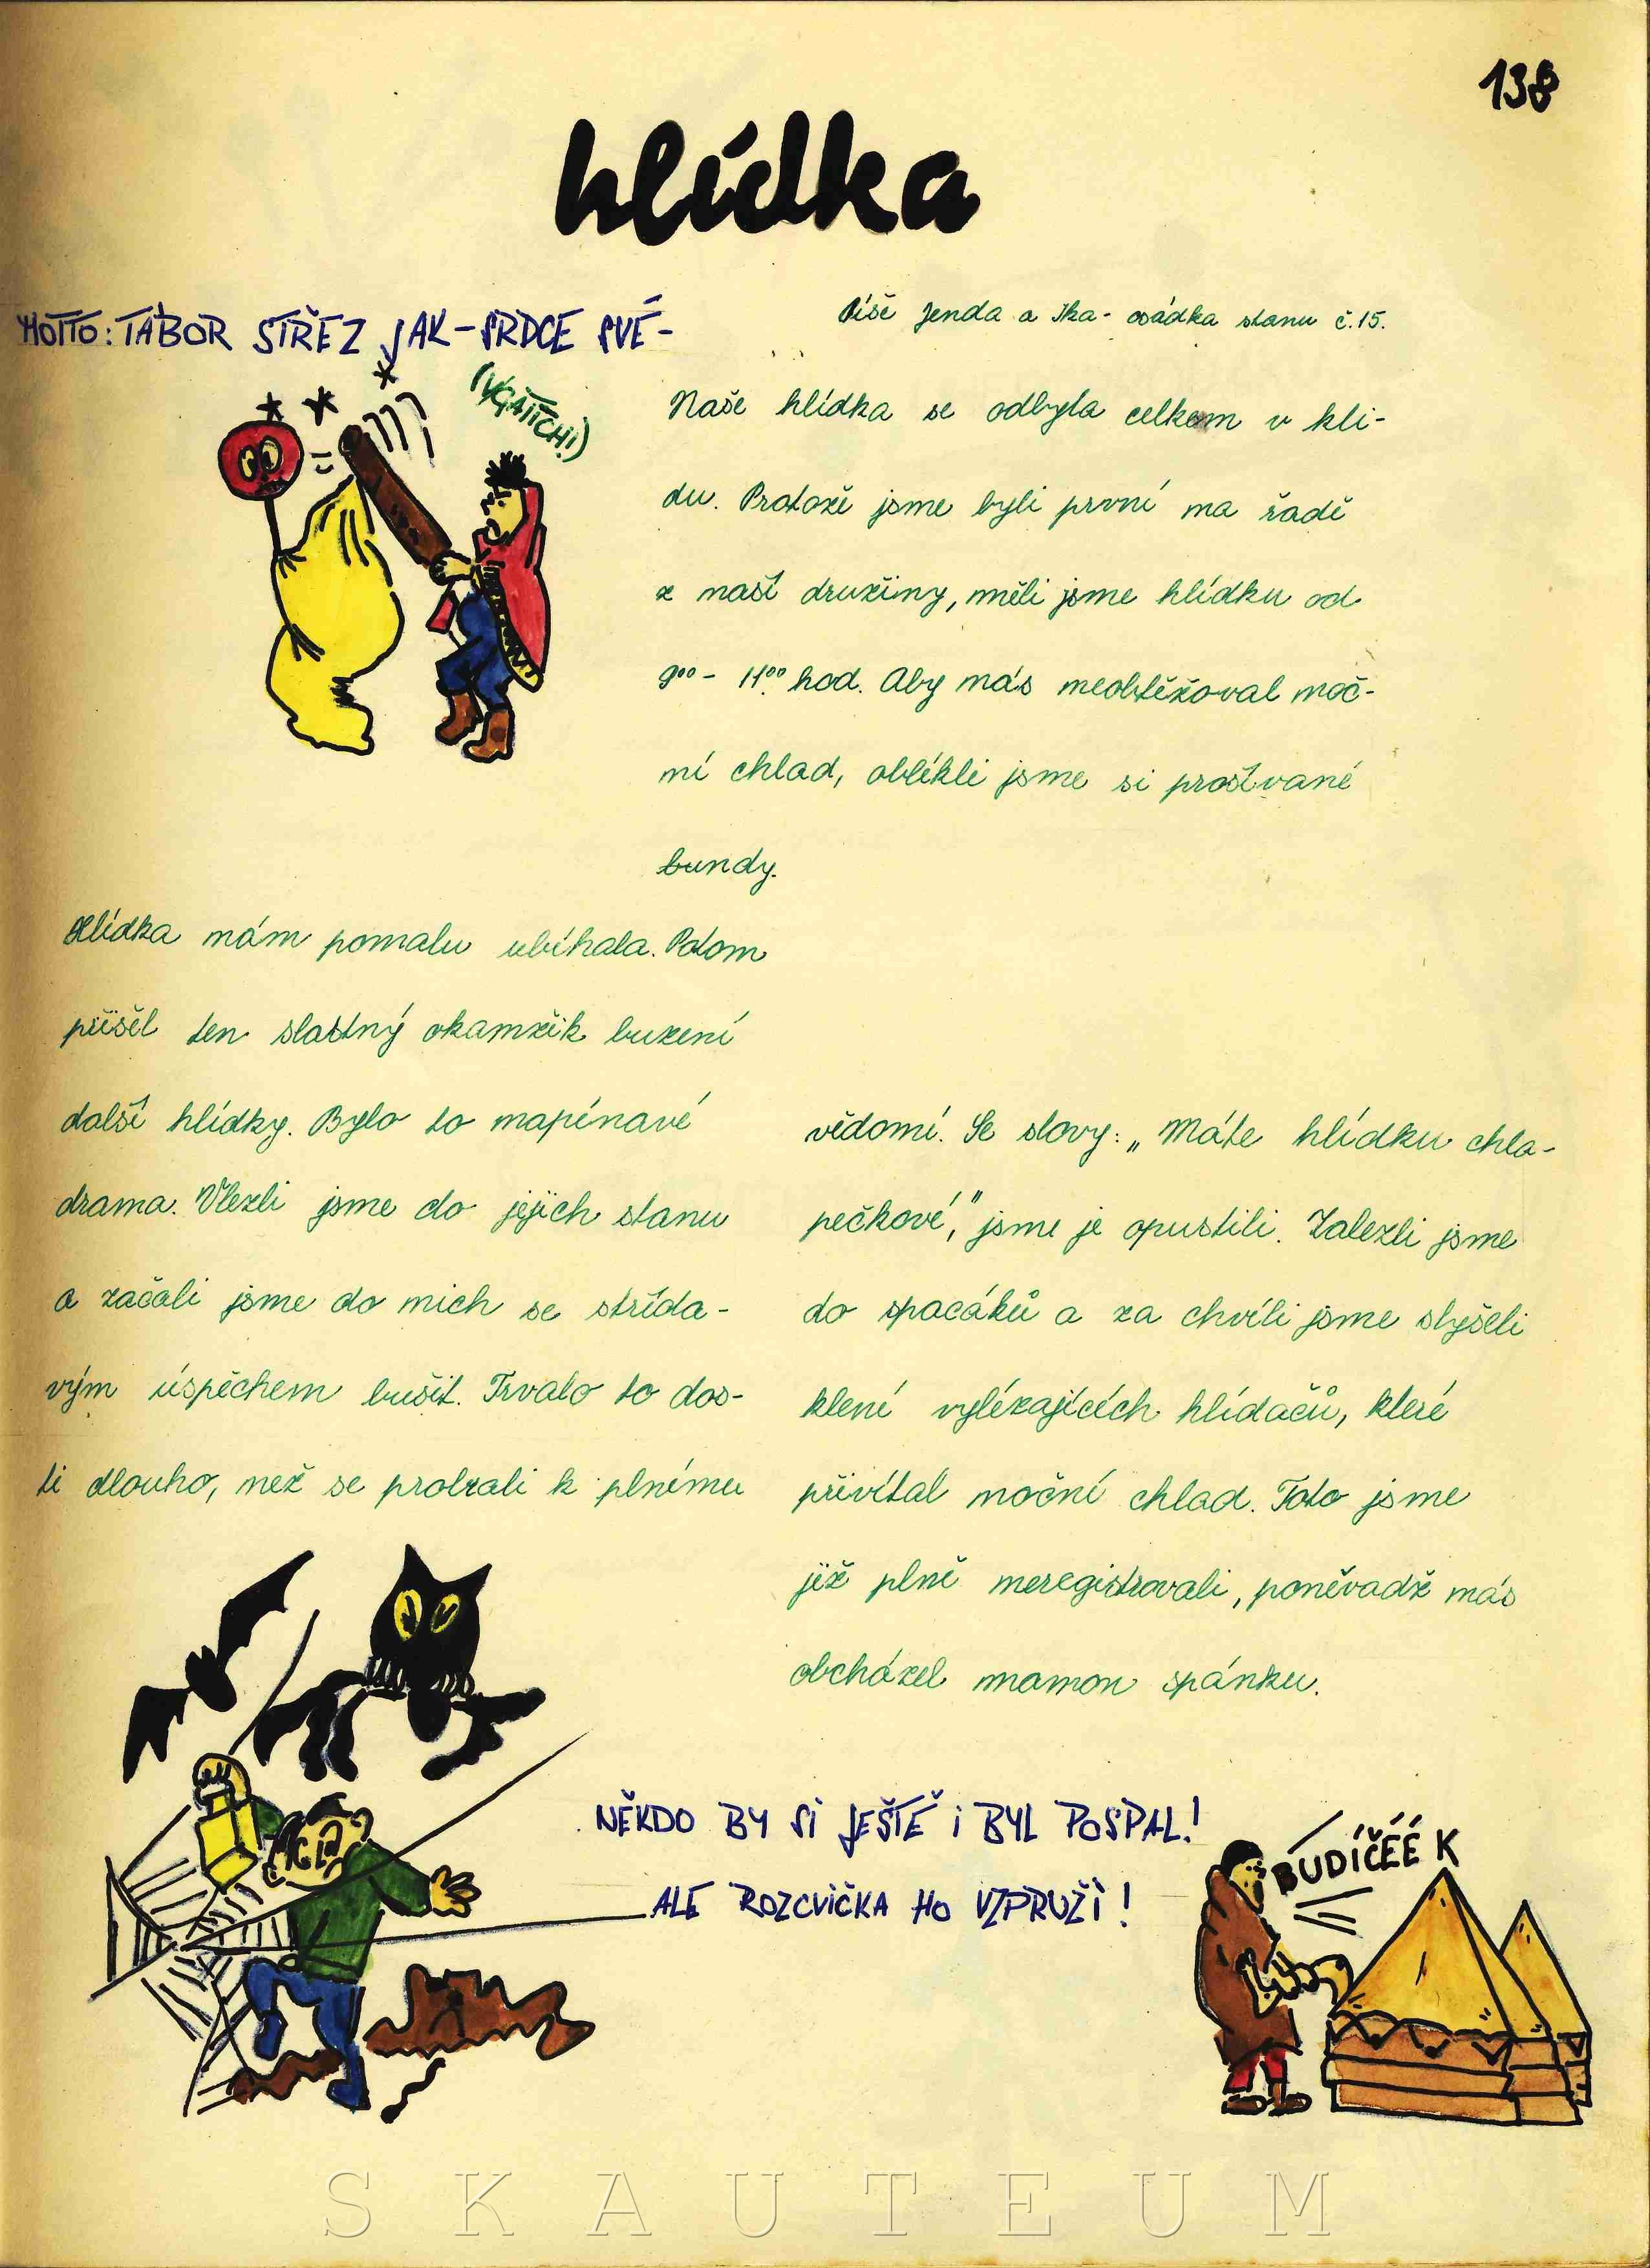 138
hlídka
MOTTO: TÁBOR STŘEZ JAK - SRDCE SVÉ -
Píše Jenda a Ika - osádka stanu č.15.
Naše hlídka se odbyla celkem v kli-
du. Protože jsme byli první na řadě
z naší družiny, měli jsme hlídku od
9⁰⁰ - 11⁰⁰ hod. Aby nás neobtěžoval noč-
ní chlad, oblékli jsme si prošívané
bundy.
Hlídka nám pomalu ubíhala. Potom
přišel ten slastný okamžik buzení
další hlídky. Bylo to napínavé
drama. Vlezli jsme do jejich stanu
a začali jsme do nich se střída-
vým úspěchem bušit. Trvalo to dos-
ti dlouho, než se probrali k plnému
vědomí. Se slovy: „Máte hlídku chla-
pečkové," jsme je opustili. Zalezli jsme
do spacáků a za chvíli jsme slyšeli
klení vylézajících hlídačů, které
přivítal noční chlad. Toto jsme
již plně neregistrovali, poněvadž nás
obcházel mamon spánku.
NĚKDO BY SI JEŠTĚ I BYL POSPAL!
ALE ROZCVIČKA HO VZPRUŽÍ!
BUDÍČÉÉ K
SKAUTEUM